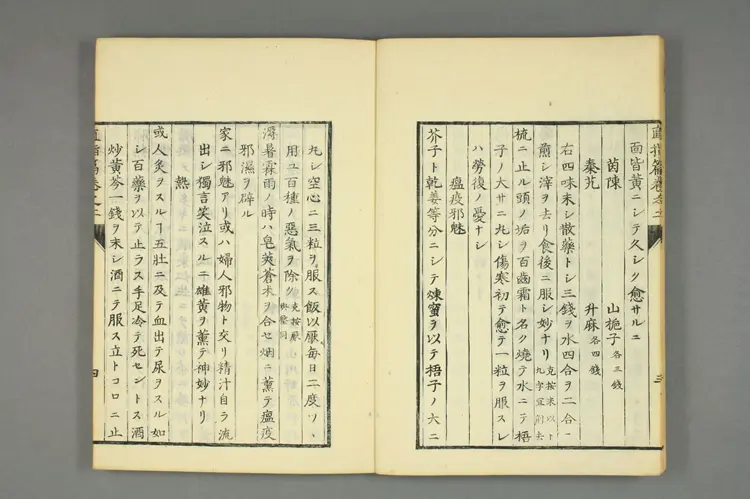 面皆黃ニシテ久シク愈サルニ
茵陳 山梔子各三錢
秦艽 升麻各四錢
右四味末シ散藥トシ三錢ヲ水四合ヲ二合ニ
煎シ滓ヲ去リ食後ニ服シ妙ナリ
梳ニ止ル頭ノ垢ヲ百齒霜ト名ク燒テ水ニテ梧
子ノ大サニ丸シ傷寒初テ愈テ一粒ヲ服スレ
ハ勞復ノ憂ナシ
瘟疫邪魅
芥子ト乾姜等分ニシテ煉蜜ヲ以テ梧子ノ大ニ
三
丸シ空心ニ三粒ヲ服ス飯以厭每日二度ツヽ
用ユ百種ノ惡氣ヲ除ク
潯暑霖雨ノ時ハ皂莢蒼朮ヲ合セ烟ニ薰テ瘟疫
邪濕ヲ辟ル
家ニ邪魅アリ或ハ婦人邪物ト交リ精汁自ラ流
出シ獨言笑泣スルニ雄黃ヲ薰テ神妙ナリ
熱
或人灸ヲスルヿ五壯ニ及テ血出テ尿ヲスル如
シ百藥ヲ以テ止ラス手足冷テ死セントス酒
炒黃芩一錢ヲ末シ酒ニテ服ス立トコロニ止
四